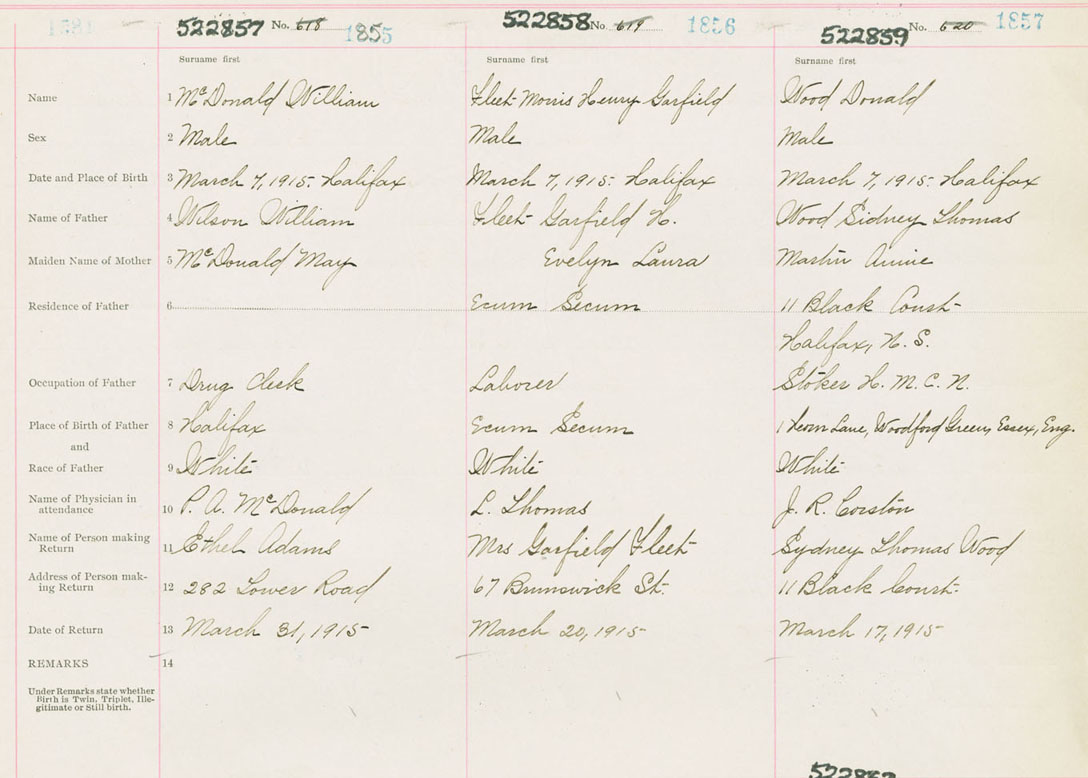 522857 No. 618 1855
522858 No. 619 1856
522859 No. 620 1857
Surname first Surname first Surname first
Name 1 McDonald William Fleet Morris Henry Garfield Wood Donald
Sex 2 Male Male Male
Date and Place of Birth 3 March 7, 1915. Halifax March 7, 1915. Halifax March 7, 1915. Halifax
Name of Father 4 Wilson William Fleet Garfield H. Wood Sidney Thomas
Maiden Name of Mother 5 McDonald May Evelyn Laura Martin Annie
Residence of Father 6 Ecum Secum 11 Black Court
Halifax, N. S.
Occupation of Father 7 Drug Clerk Laborer Stoker H. M. C. N.
Place of Birth of Father 8 Halifax Ecum Secum 1 Lane, Woodford Green, Essex, Eng.
and
Race of Father 9 White White White
Name of Physician in
attendance 10 P. A. McDonald L. Thomas J. R. Corston
Name of Person making
Return 11 Ethel Adams Mrs Garfield Fleet Sydney Thomas Wood
Address of Person mak-
ing Return 12 282 Lower Road 67 Brunswick St. 11 Black Court.
Date of Return 13 March 31, 1915 March 20, 1915 March 17, 1915
REMARKS 14
Under Remarks state whether
Birth is Twin, Triplet, Ille-
gitimate or Still birth.